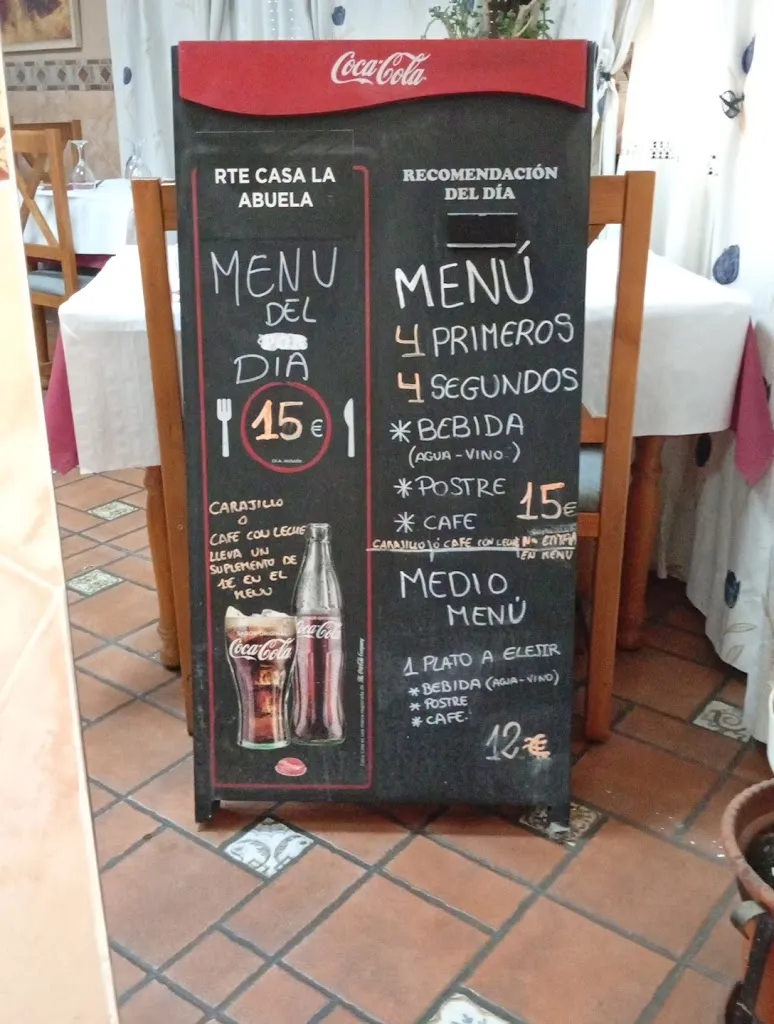 Coca-Cola
RTE CASA LA
ABUELA
MENU
DEL
DIA
15 €
CARAJILLO
O
CAFE CON LECHE
LLEVA UN
SUPLEMENTO DE
1€ EN EL
MENU
Coca-Cola
Coca-Cola
RECOMENDACIÓN
DEL DÍA
MENÚ
4 PRIMEROS
4 SEGUNDOS
* BEBIDA
(AGUA-VINO)
* POSTRE
* CAFE
15€
CARAJILLO Ó CAFE CON LECHE NO ENTRA
EN MENU
MEDIO
MENÚ
1 PLATO A ELEJIR
* BEBIDA (AGUA-VINO)
* POSTRE
* CAFE.
12€